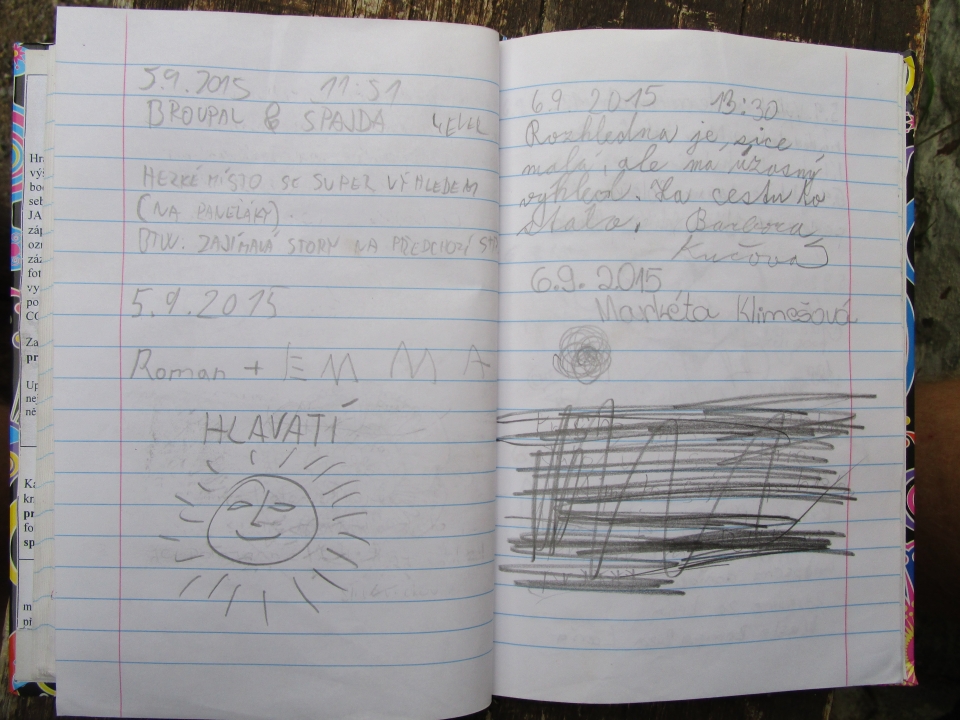 5.9.2015 11:51
BROUPAL & SPAJDA
HEZKÉ MÍSTO SE SUPER VÝHLEDEM
(NA PANELÁKY).
BTW. ZAJÍMAVÁ STORY NA PŘEDCHOZÍ
5.9.2015
Roman + EMMA
HLAVATÍ
6.9. 2015 13:30
Rozhledna je, sice
malá, ale má úžasný
výhled. Ta cesta ko
stála. Barbora
Kučová
6.9.2015
Markéta Klimešová
Hr
výš
bo
seb
JA
záp
ozn
záz
fot
vy
po
CO
Za
pr
Up
nej
ně
Ka
kr
pr
fo
sp
m
př